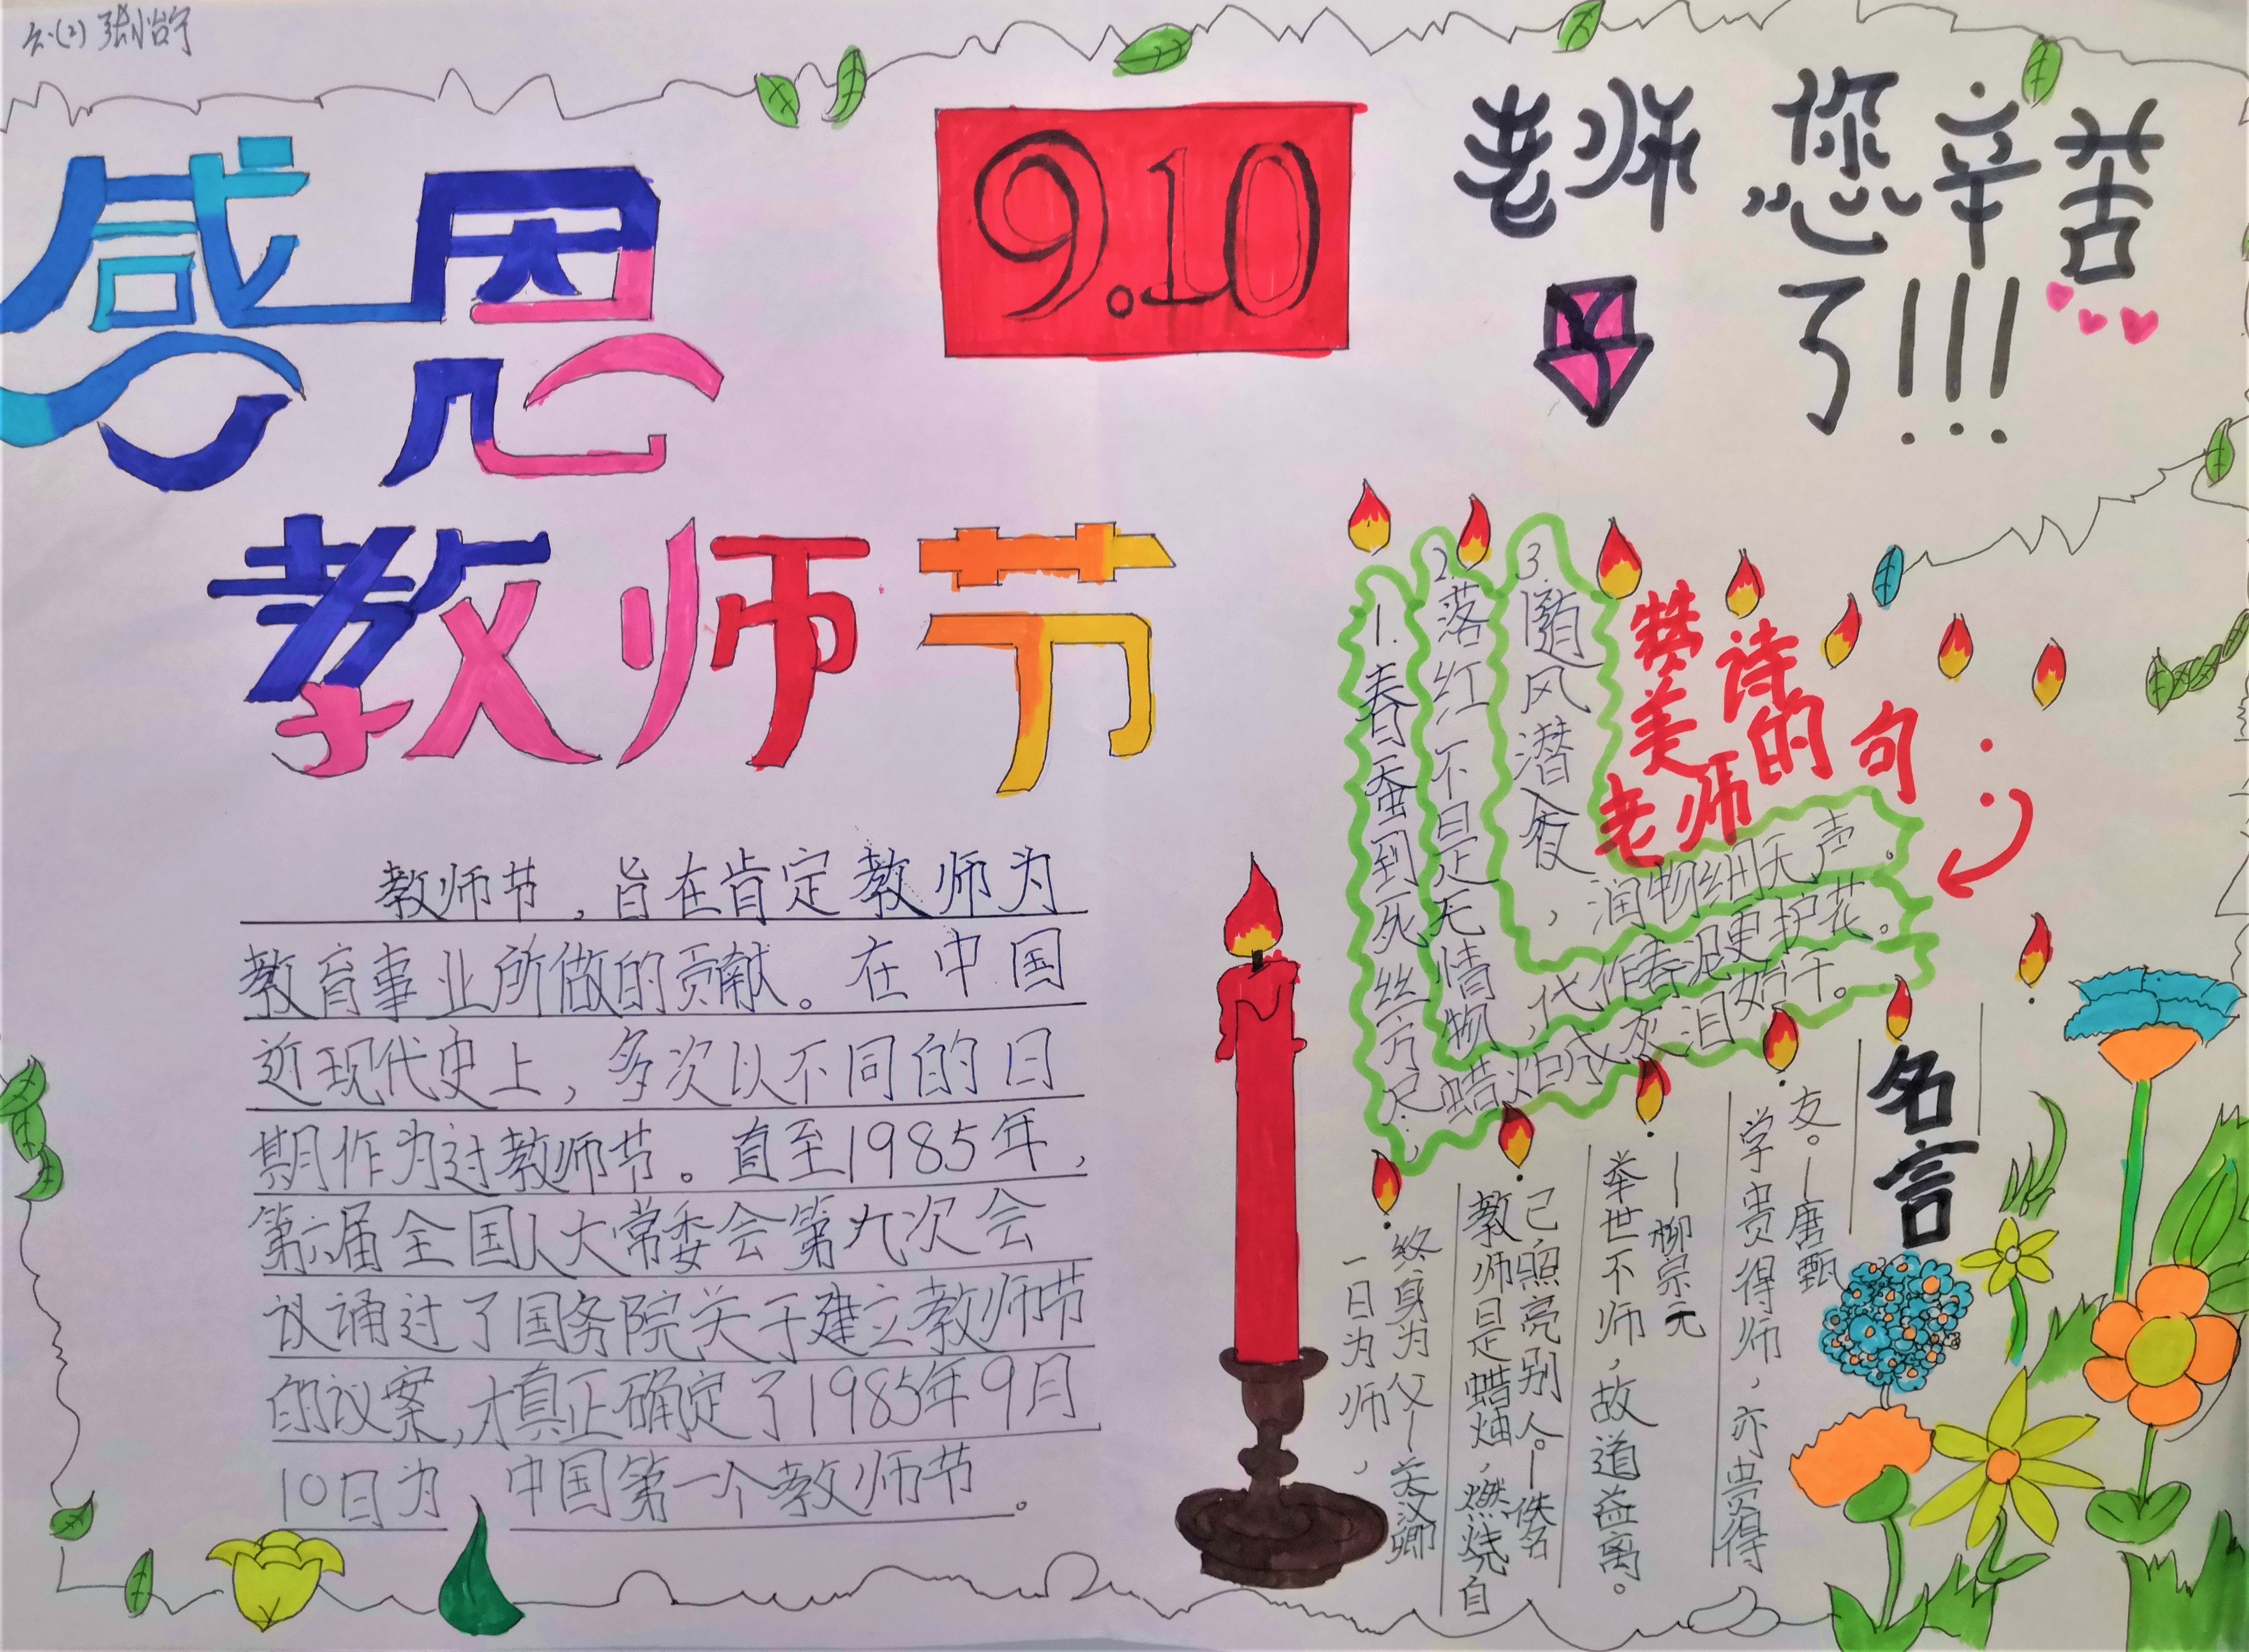 六(2) 张怡宁
感恩
教师节
9.10
老师 您辛苦
了!!!
教师节,旨在肯定教师为
教育事业所做的贡献。在中国
近现代史上,多次以不同的日
期作为过教师节。直至1985年,
第六届全国人大常委会第九次会
议通过了国务院关于建立教师节
的议案,才真正确定了1985年9月
10日为、中国第一个教师节。
赞美老师的诗句:
1.春蚕到死丝方尽,蜡炬成灰泪始干。
2.落红不是无情物,代作春泥更护花。
3.随风潜入夜,润物细无声。
名言
学贵得师,亦贵得
友。—唐甄
举世不师,故道益离。
—柳宗元
教师是蜡烛,燃烧自
己,照亮别人。—佚名
一日为师,
终身为父—关汉卿